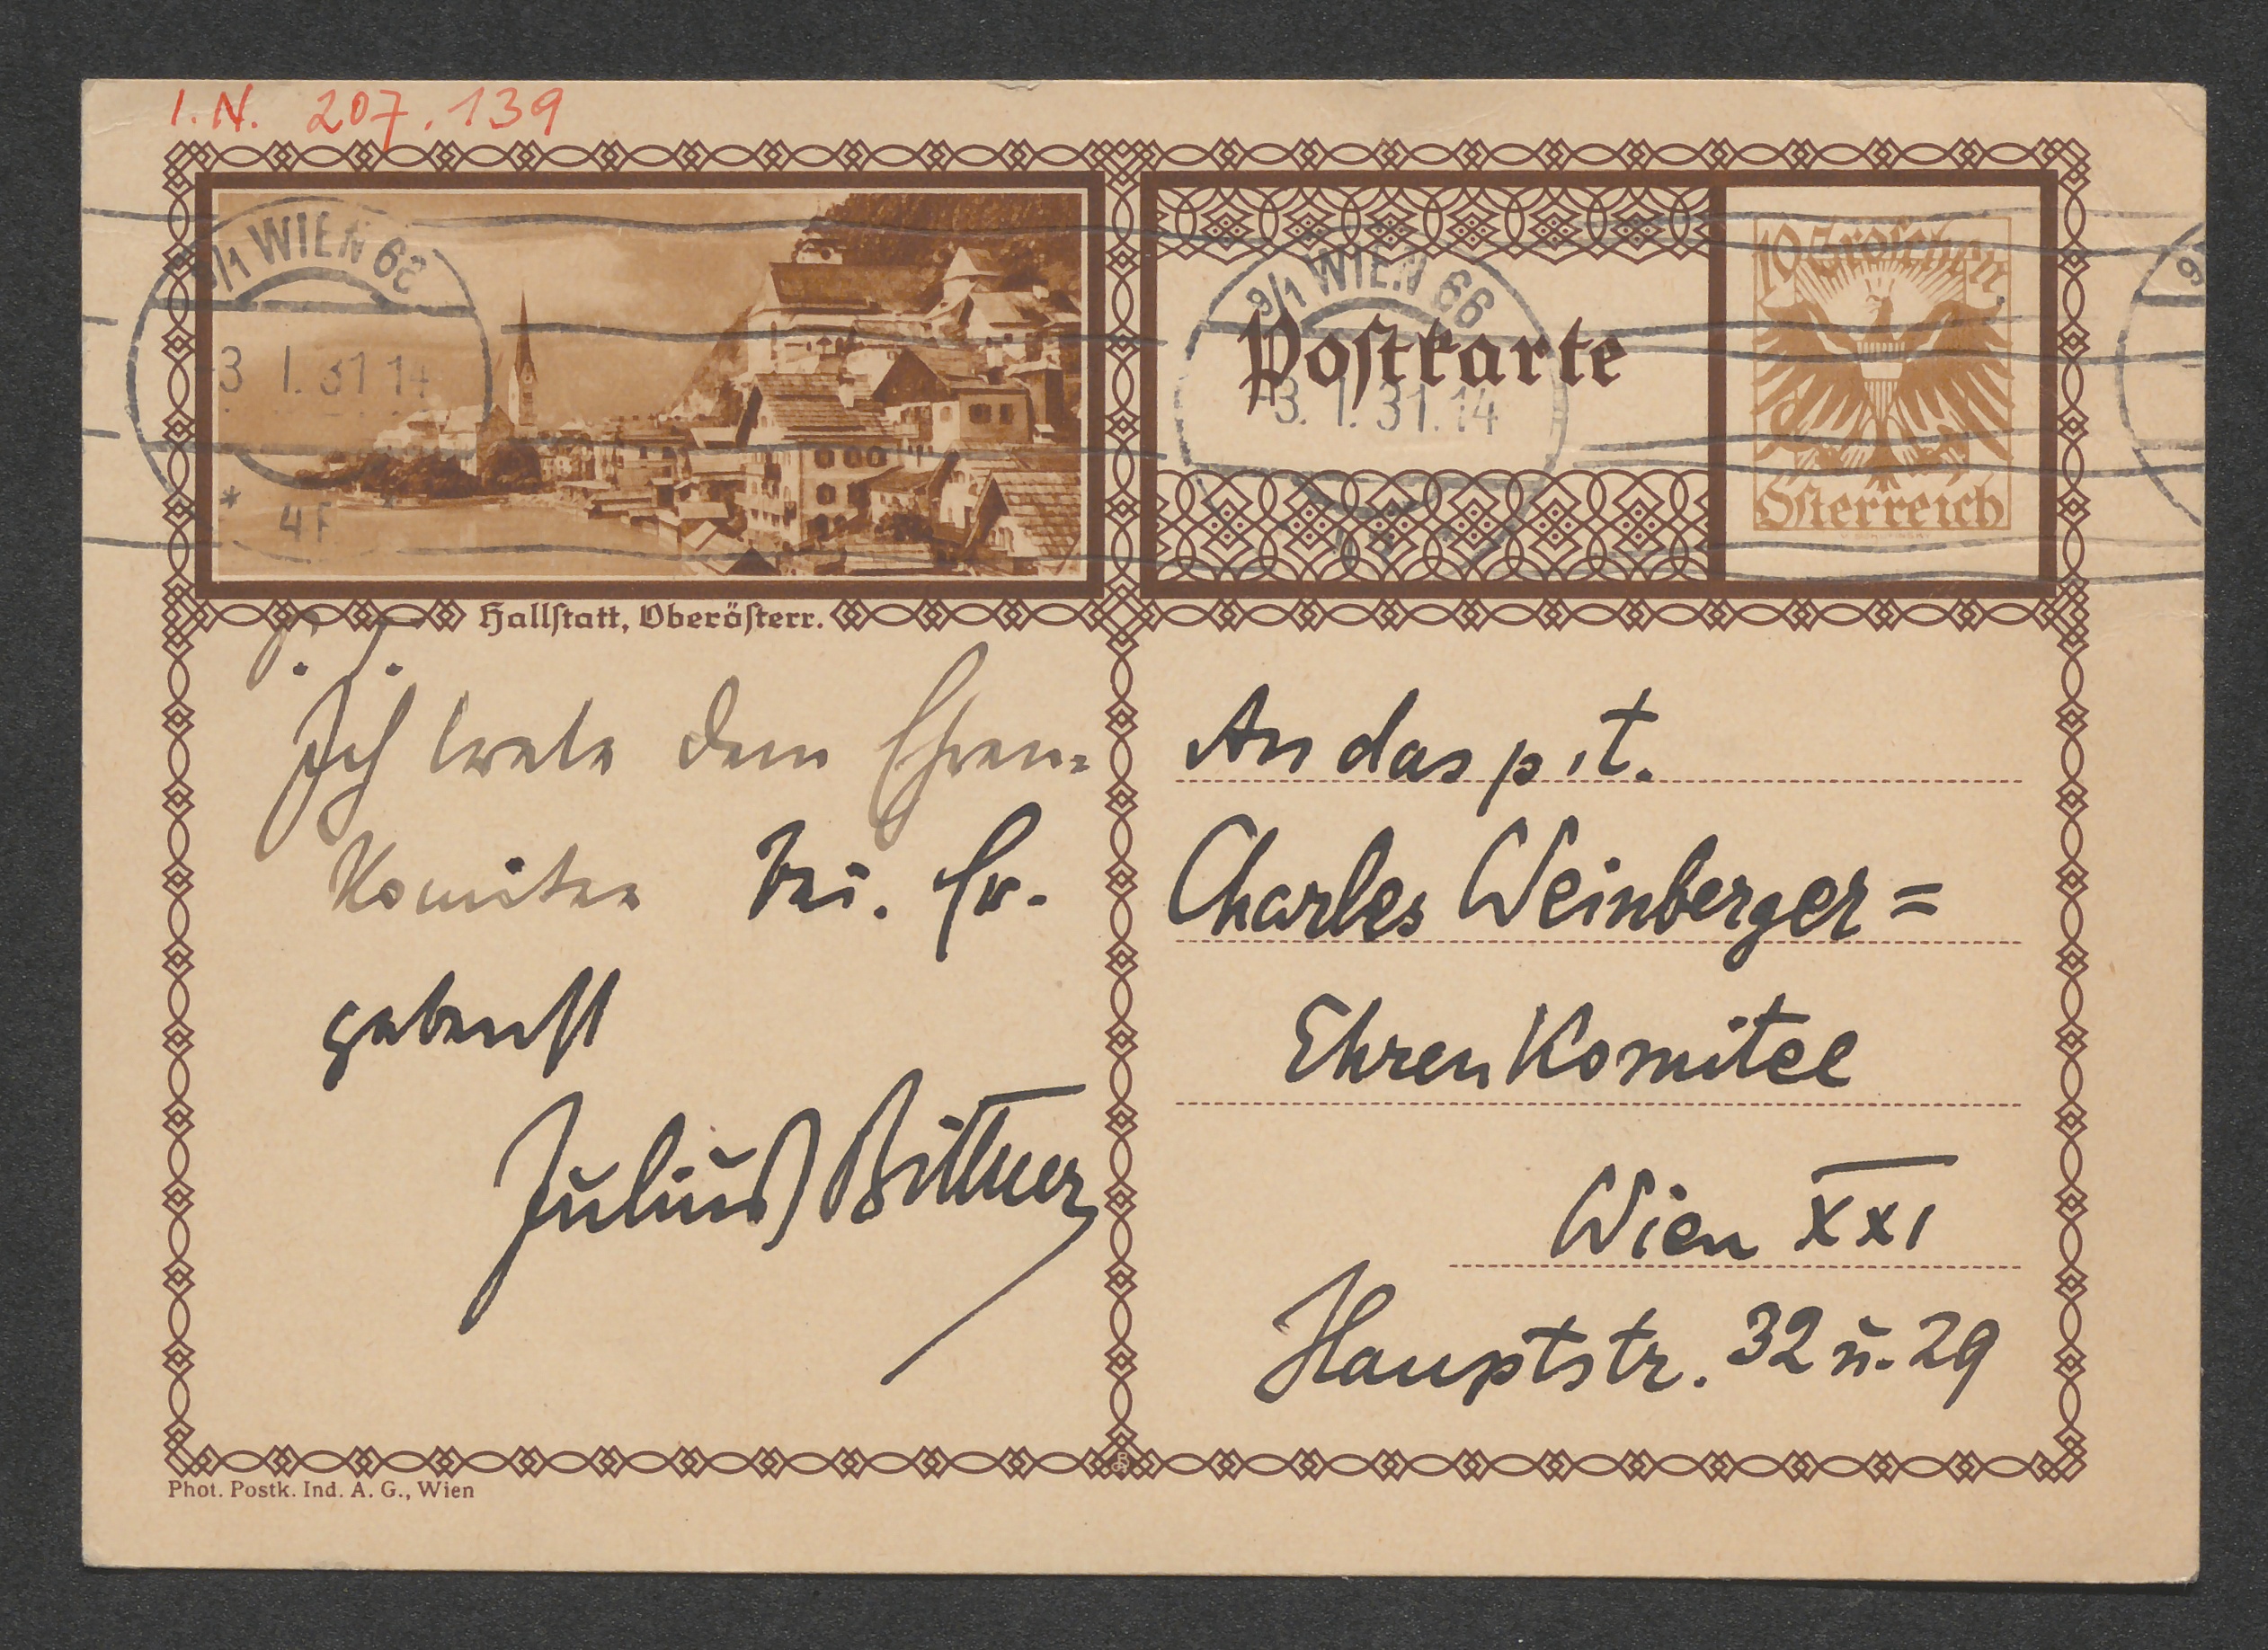 I.N. 207.139
9/1 WIEN 66
3. I. 31 14
* 4F
Hallstatt, Oberösterr.
Postkarte
9/1 WIEN 66
-3. I. 31. 14
10 Groschen
Österreich
P. T.
Ich trete dem Ehren-
Komitee bei. Er-
gebenst
Julius Bittner
An das p.t.
Charles Weinberger=
Ehren Komitee
Wien XXI
Hauptstr. 32 u. 29
Phot. Postk. Ind. A. G., Wien